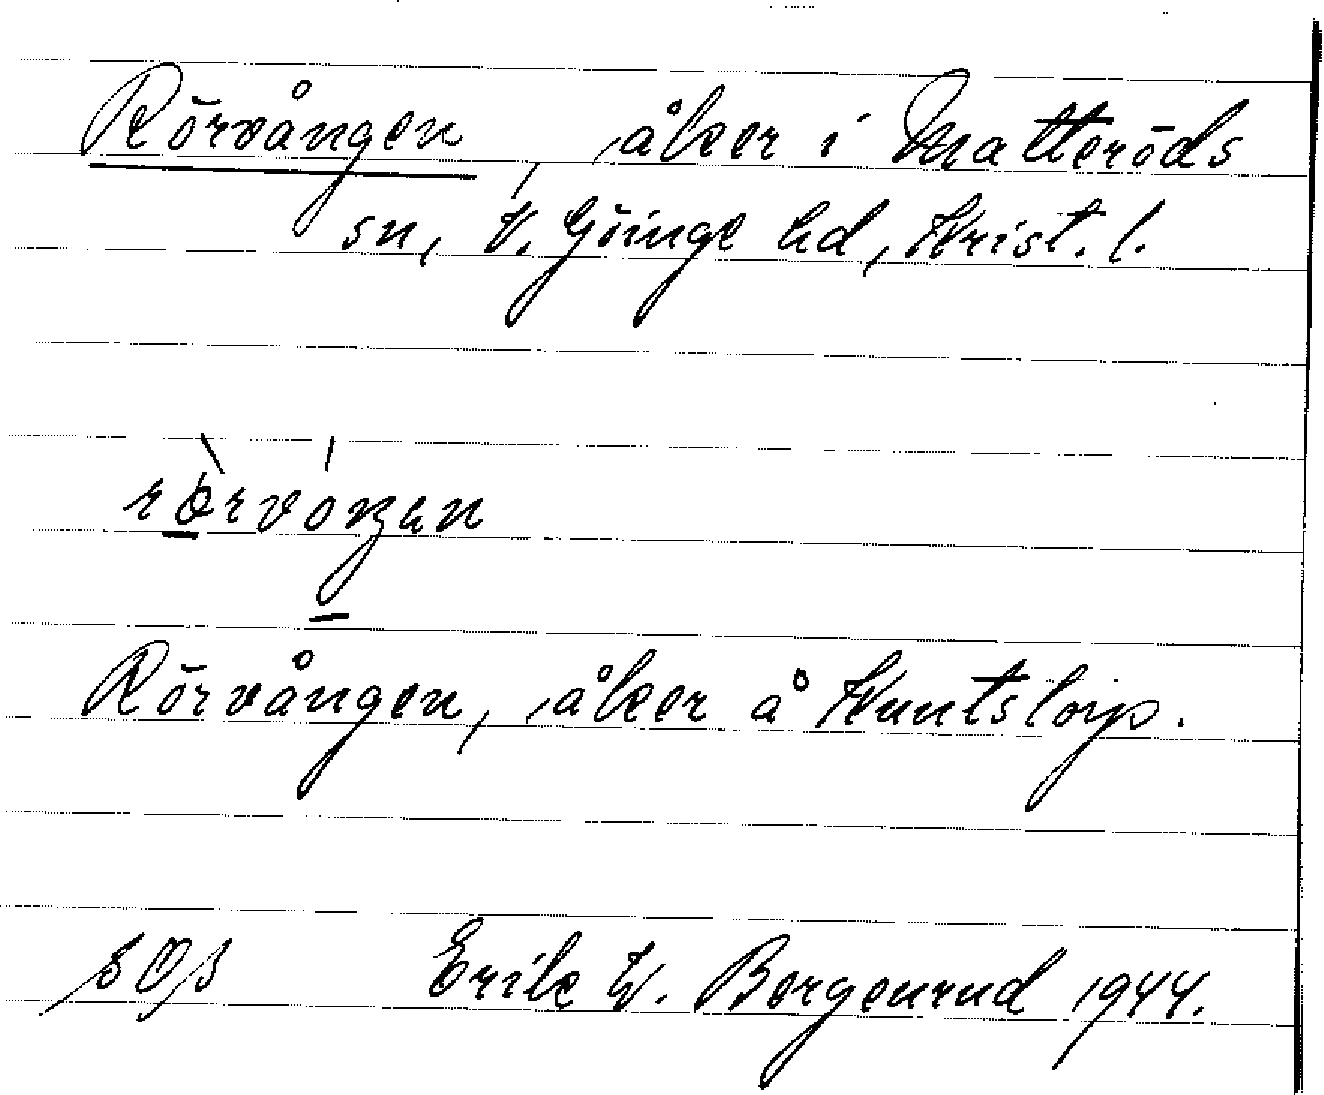 Rörvången, åker i Matteröds
sn, V. Göinge hd, Krist. l.
rörvoŋen
Rörvången, åker å Kuntslorp.
SOS Erik W. Borgenrud 1944.